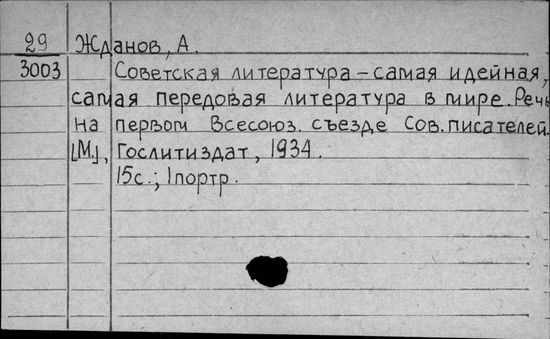 29 Жданов, А.
3003 Советская литература – самая идейная,
самая передовая литература в мире. Речь
на первом Всесоюз. съезде Сов. писателей.
[М.], Гослитиздат, 1934.
15с.; 1портр.